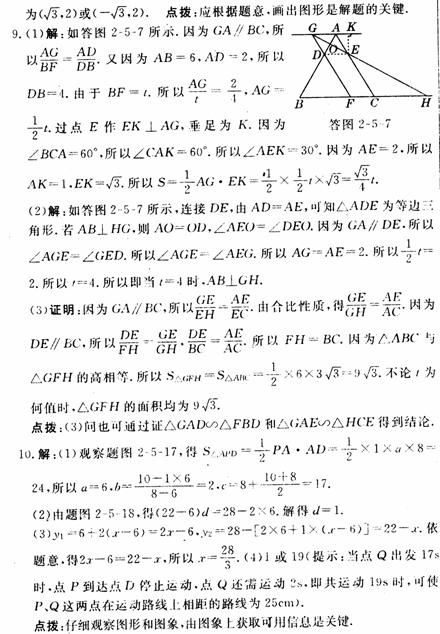 为(√3,2)或(-√3,2). 点拨:应根据题意,画出图形是解题的关键.
9.(1)解:如答图 2-5-7 所示.因为 GA∥BC,所
以AG/BF=AD/DB.又因为 AB=6,AD=2,所以
DB=4.由于 BF=t.所以AG/t=2/4,AG=
1/2t.过点 E 作 EK⊥AG,垂足为 K.因为
G A K
D O E
B F C H
答图 2-5-7
∠BCA=60°,所以∠CAK=60°.所以∠AEK=30°.因为 AE=2,所以
AK=1,EK=√3.所以 S=1/2AG·EK=1/2×1/2t×√3=√3/4t.
(2)解:如答图 2-5-7 所示,连接 DE,由 AD=AE,可知△ADE 为等边三
角形.若 AB⊥HG,则 AO=OD,∠AEO=∠DEO.因为 GA∥DE,所以
∠AGE=∠GED.所以∠AGE=∠AEG.所以 AG=AE=2.所以1/2t=
2.所以 t=4.所以即当 t=4 时,AB⊥GH.
(3)证明:因为 GA∥BC,所以GE/EH=AE/EC.由合比性质,得GE/GH=AE/AC.因为
DE∥BC,所以DE/FH=GE/GH,DE/BC=AE/AC.所以 FH=BC.因为△ABC 与
△GFH 的高相等.所以 S△GFH=S△ABC=1/2×6×3√3=9√3.不论 t 为
何值时,△GFH 的面积均为 9√3.
点拨:(3)问也可通过证△GAD∽△FBD 和△GAE∽△HCE 得到结论.
10.解:(1)观察题图 2-5-17,得 S△APD=1/2PA·AD=1/2×1×a×8=
24,所以 a=6,b=(10-1×6)/(8-6)=2,c=8+(10+8)/2=17.
(2)由题图 2-5-18,得(22-6)d=28-2×6.解得 d=1.
(3)y₁=6+2(x-6)=2x-6,y₂=28-[2×6+1×(x-6)]=22-x.依
题意,得2x-6=22-x,所以 x=28/3.(4)1 或 19(提示:当点 Q 出发 17s
时,点 P 到达点 D 停止运动,点 Q 还需运动 2s,即共运动 19s 时,可使
P、Q 这两点在运动路线上相距的路线为 25cm).
点拨:仔细观察图形和图象,由图象上获取可用信息是关键.